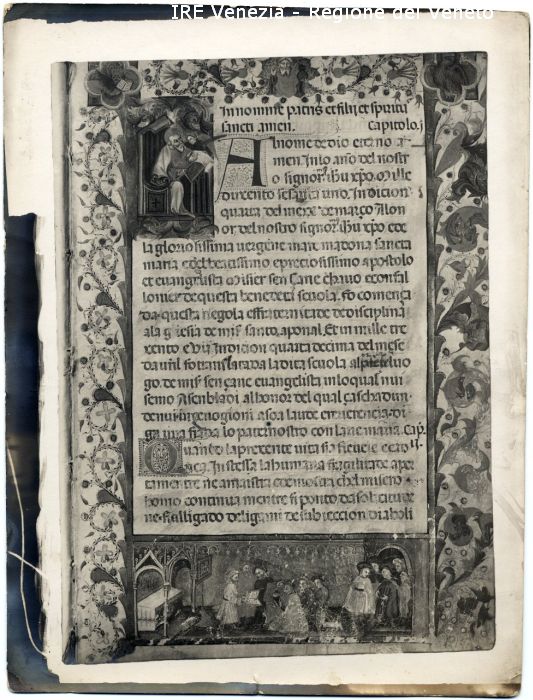 IRE Venezia - Regione del Veneto
In nomine patris et filii et spiritu
sancti amen. Capitolo. j
Al nome de dio eterno a
men. In lo ano del nostr
o signor ihu xpo. Mille
duxento sesanta uno. Indicion
quarta del mexe de março. A lon
or del nostro signor ihu xpo e de
la gloriosissima vergene mare madona sancta
maria e del beatissimo e precioxissimo apostolo
et evangelista misier sen çane chavo e confal
lonier de questa benedeta scuola. fo comença
da questa regola e fraternitade de disciplina
a la glesia de mis santo aponal. Et in mille tre
xento e VII Indicion quarta decima del mese
da vril fo translatada la dita scuola al luo
go. de mis sen çane evangelista in lo qual nui
semo Asenbladi al honor del qual caschadun
de nui
lo paternostro con l ave maria. Cap.
ij.
Quando la presente vita
In sesstessa la humana fragilitade aper
tamente ne amaistra che misero
homo continuamente
ne alligado de ligami de subieccion diaboli